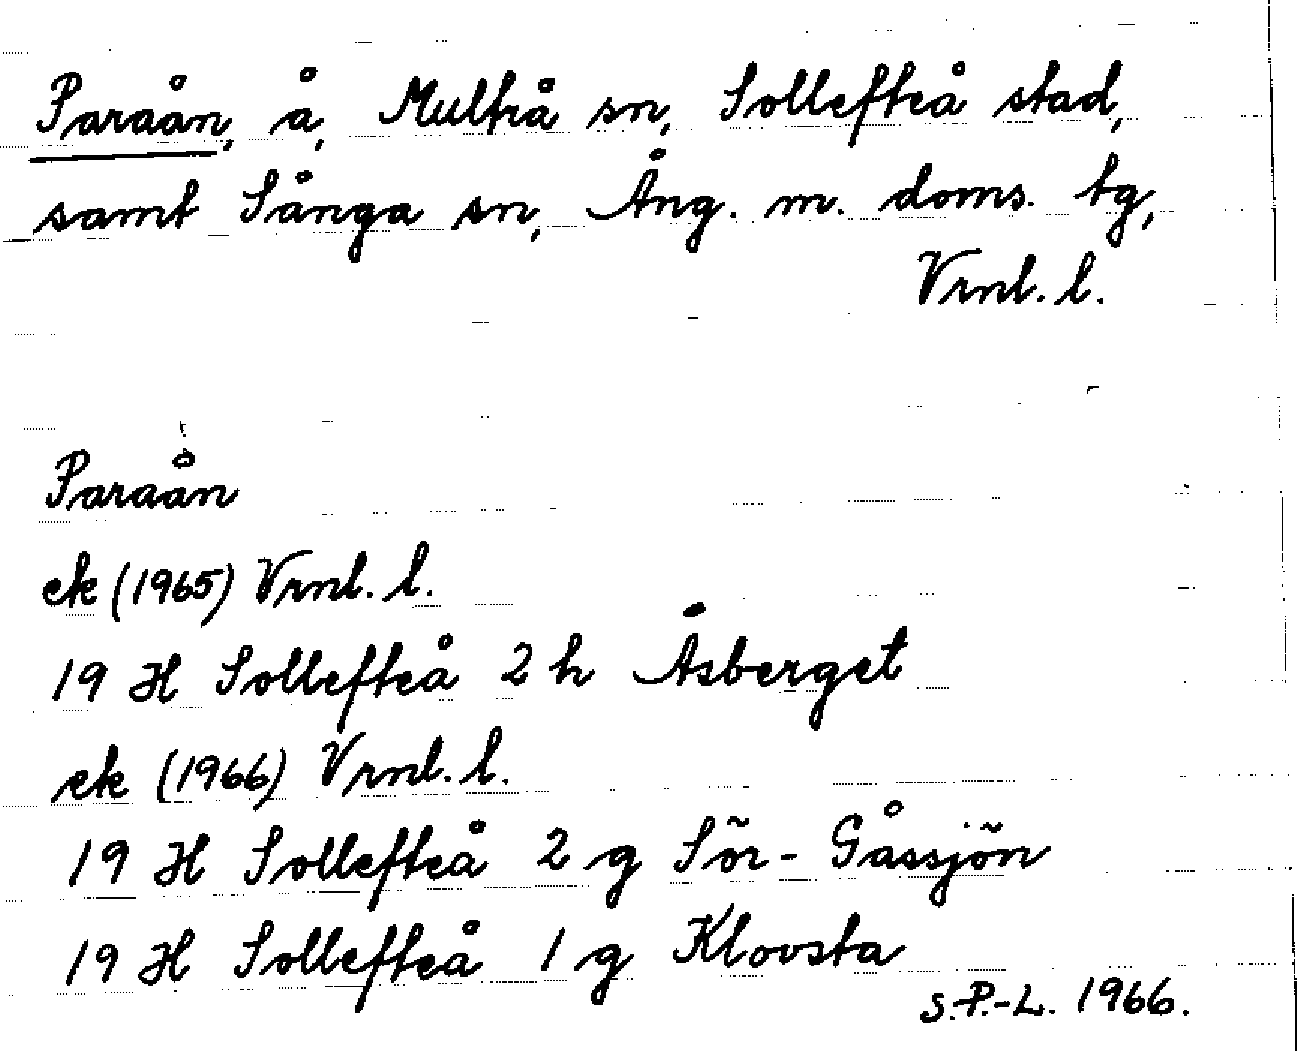 Paraån, å, Multrå sn, Sollefteå stad,
samt Sånga sn, Ång. m. doms. tg,
Vrnl. l.
Paraån
ek (1965) Vrnl. l.
19 H Sollefteå 2 h Åsberget
ek (1966) Vrnl. l.
19 H Sollefteå 2 g Sör-Gåssjön
19 H Sollefteå 1 g Klovsta
S.P.-L. 1966.